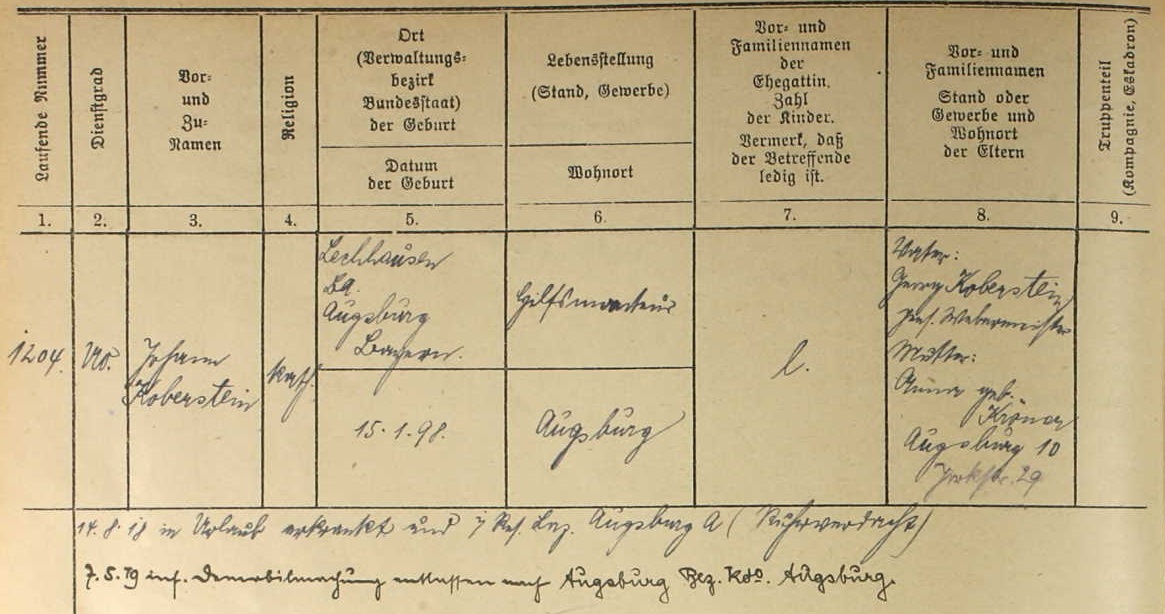 Laufende Nummer
Dienstgrad
Vor-
und
Zu-
Namen
Religion
Ort
(Verwaltungs-
bezirk
Bundesstaat)
der Geburt
Datum
der Geburt
Lebensstellung
(Stand, Gewerbe)
Wohnort
Vor- und
Familiennamen
der
Ehegattin.
Zahl
der Kinder.
Vermerk, daß
der Betreffende
ledig ist.
Vor- und
Familiennamen
Stand oder
Gewerbe und
Wohnort
der Eltern
Truppenteil
(Kompagnie, Eskadron)
1.
2.
3.
4.
5.
6.
7.
8.
9.
1204.
Johann
Koberstein
kath.
Lechhausen
BA.
Augsburg
Bayern.
15.1.98.
Hilfsmonteur
Augsburg
l.
Vater:
Georg Koberstein
Webermeister
Mutter:
Anna geb.
Kröner
Augsburg 10
Yorkstr. 29
14.8.18 in Urlaub erkrankt und i/ Res. Laz. Augsburg A (Ruhrverdacht)
7.5.19 inf. Demobilmachung entlassen nach Augsburg Bez. Kdo. Augsburg.